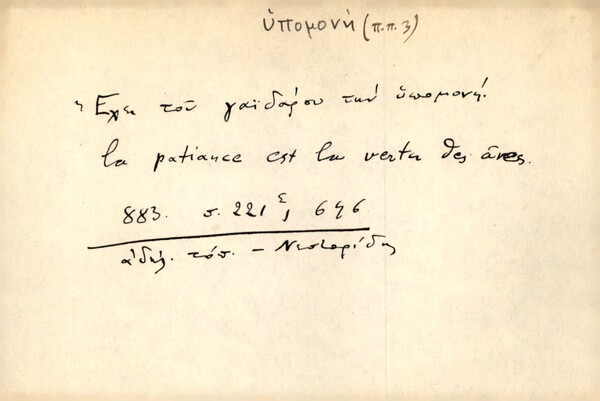 ὑπομονή (π.π. 3)
Ἔχει τοῦ γαϊδάρου τήν ὑπομονή!
la patiance est la vertu des ânes.
883. σ. 221 ς, 646
ἀδήλ. τόπ. – Νεστορίδης